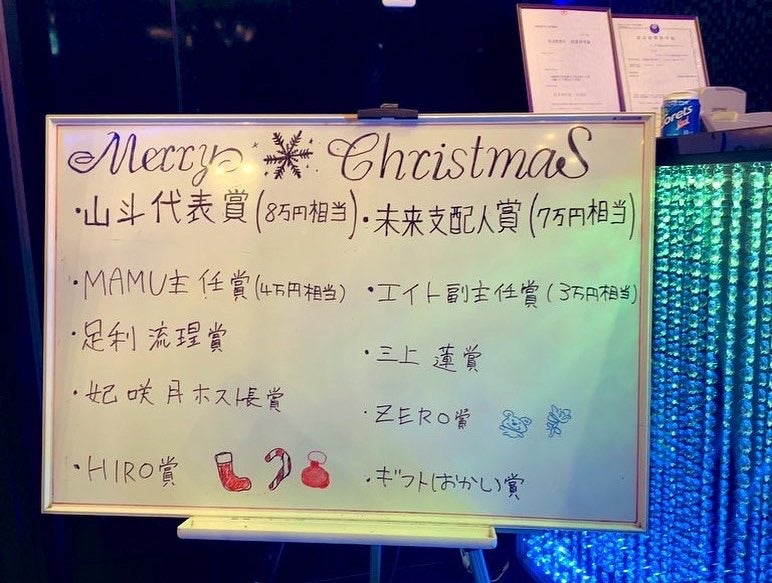 Merry Christmas
・山斗代表賞(8万円相当)
・未来支配人賞(7万円相当)
・MAMU主任賞(4万円相当)
・エイト副主任賞(3万円相当)
・足利 流瑆賞
・三上 蓮賞
・妃 咲月ホスト長賞
・ZERO賞
・HIRO賞
・ギフト(おかし)賞
orets